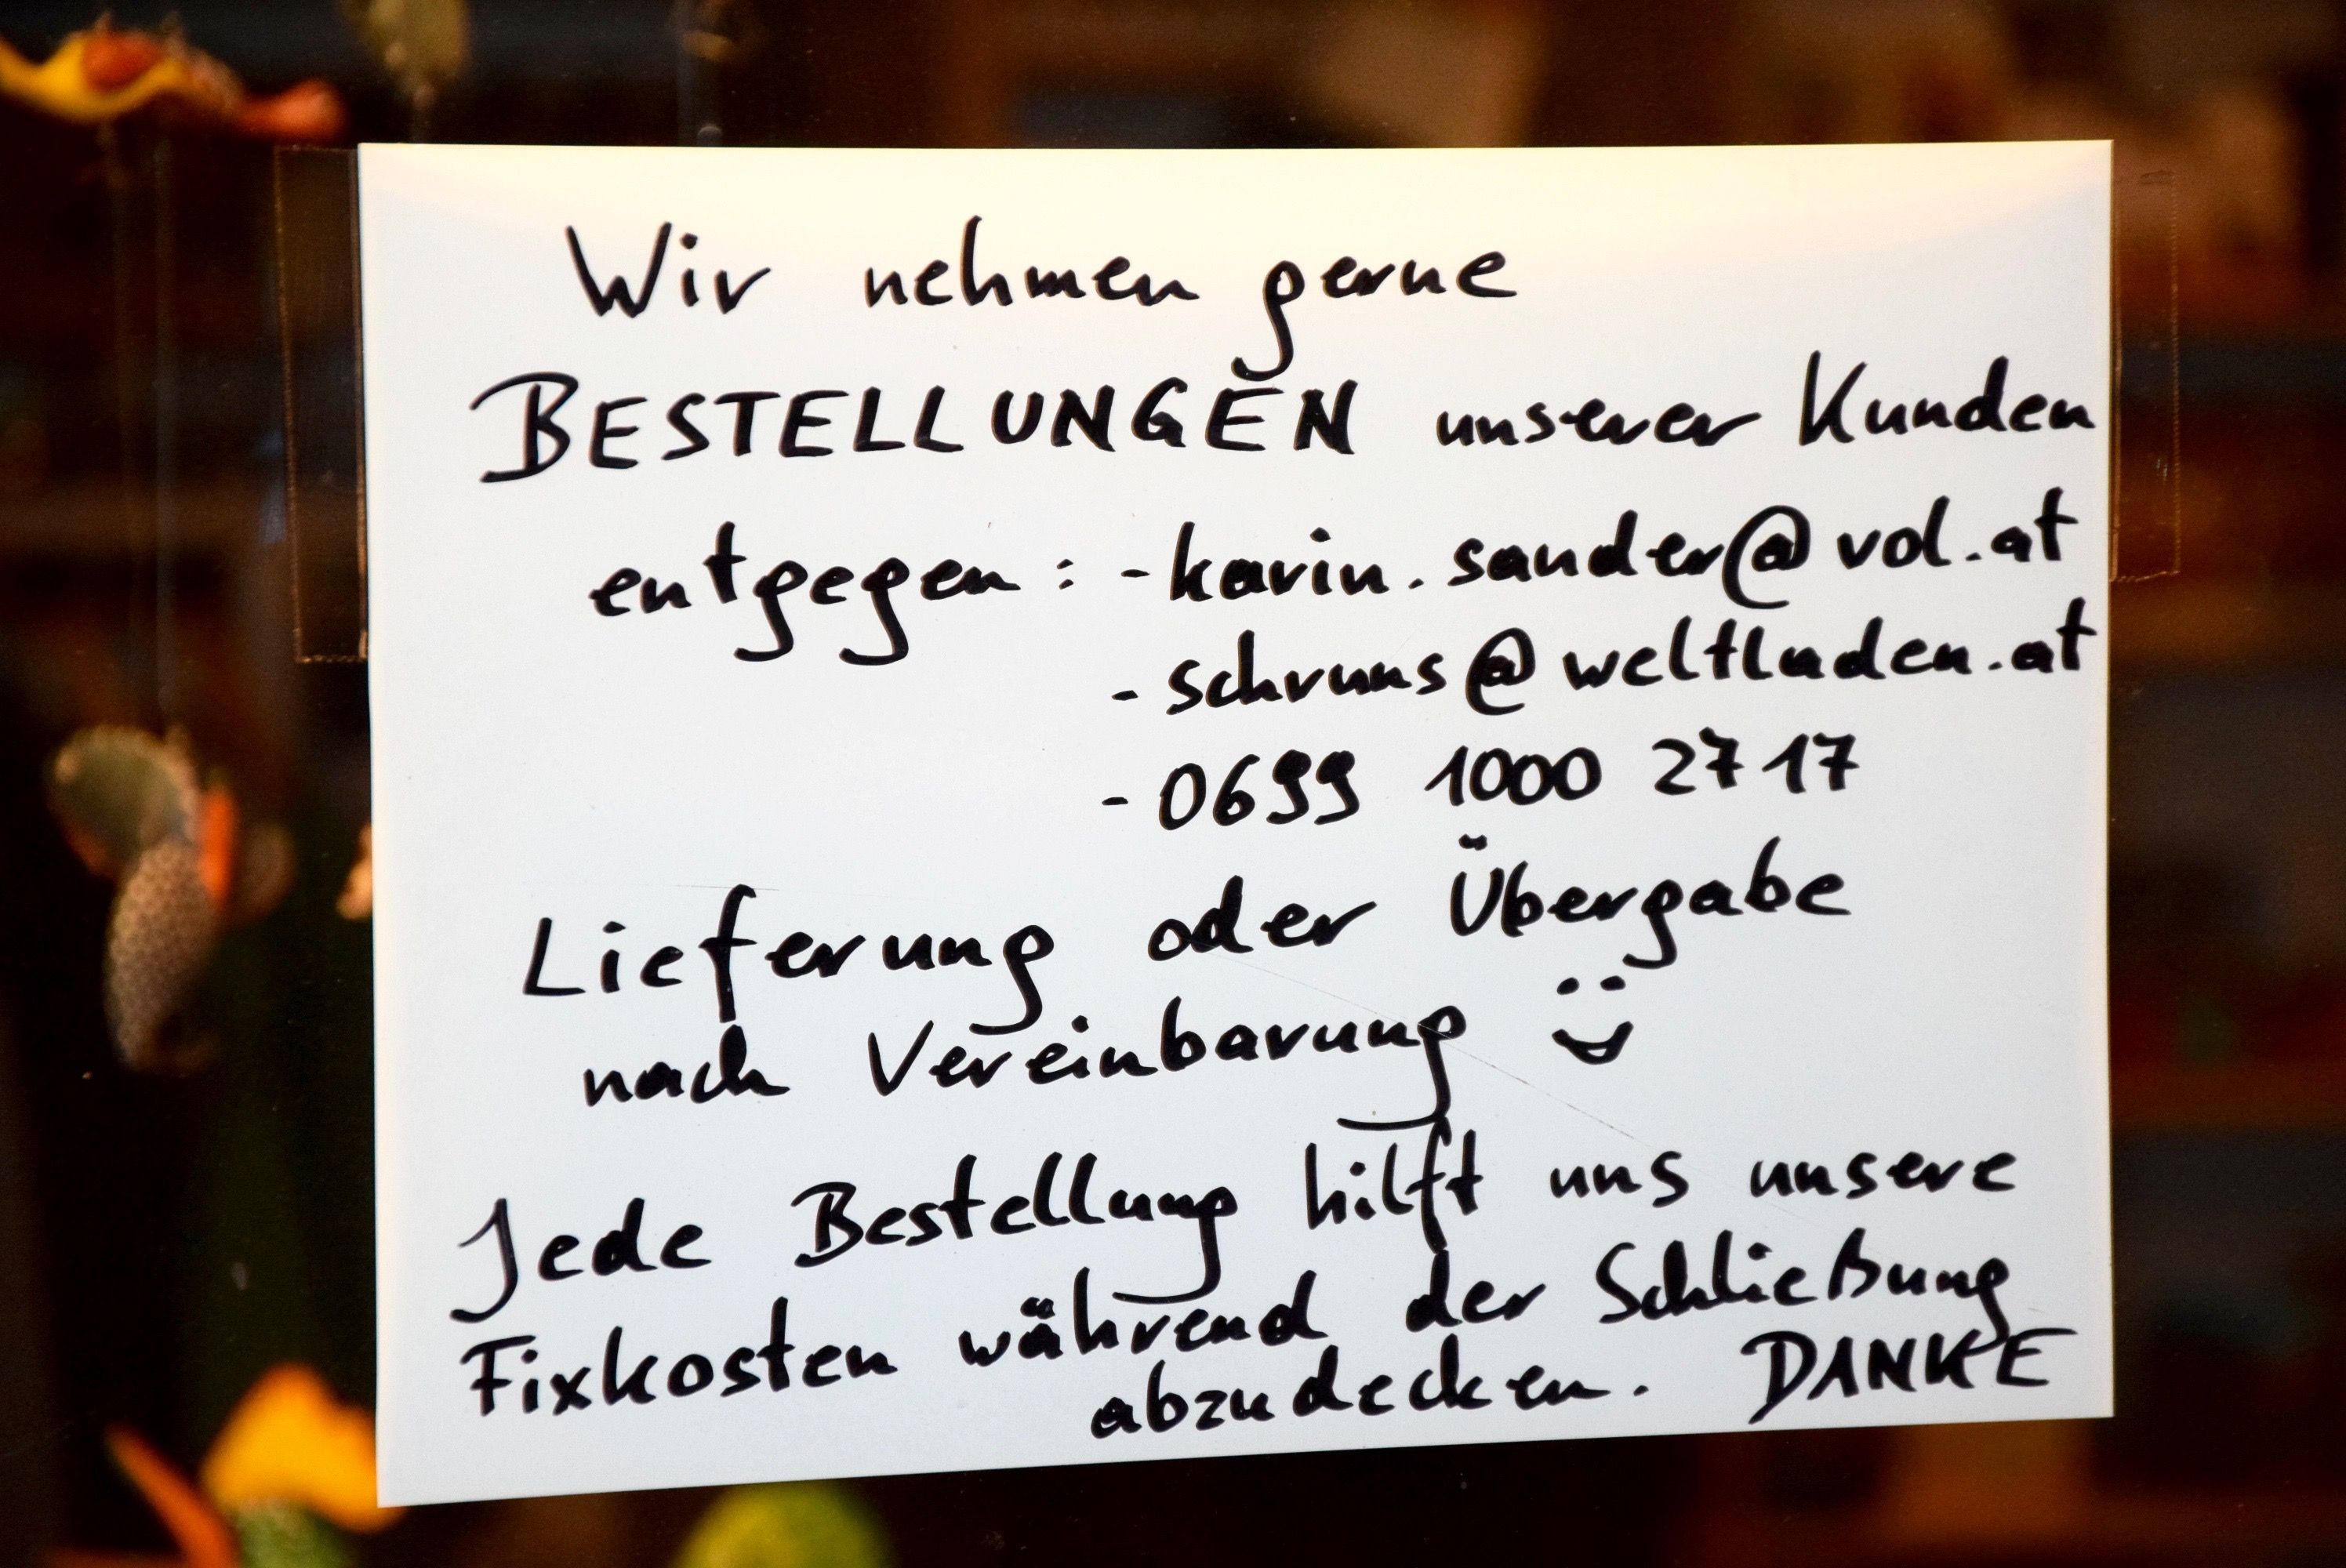 Wir nehmen gerne
BESTELLUNGEN unserer Kunden
entgegen : - karin.sander@vol.at
- schruns@weltladen.at
- 0699 1000 2717
Lieferung oder Übergabe
nach Vereinbarung
Jede Bestellung hilft uns unsere
Fixkosten während der Schließung
abzudecken. DANKE